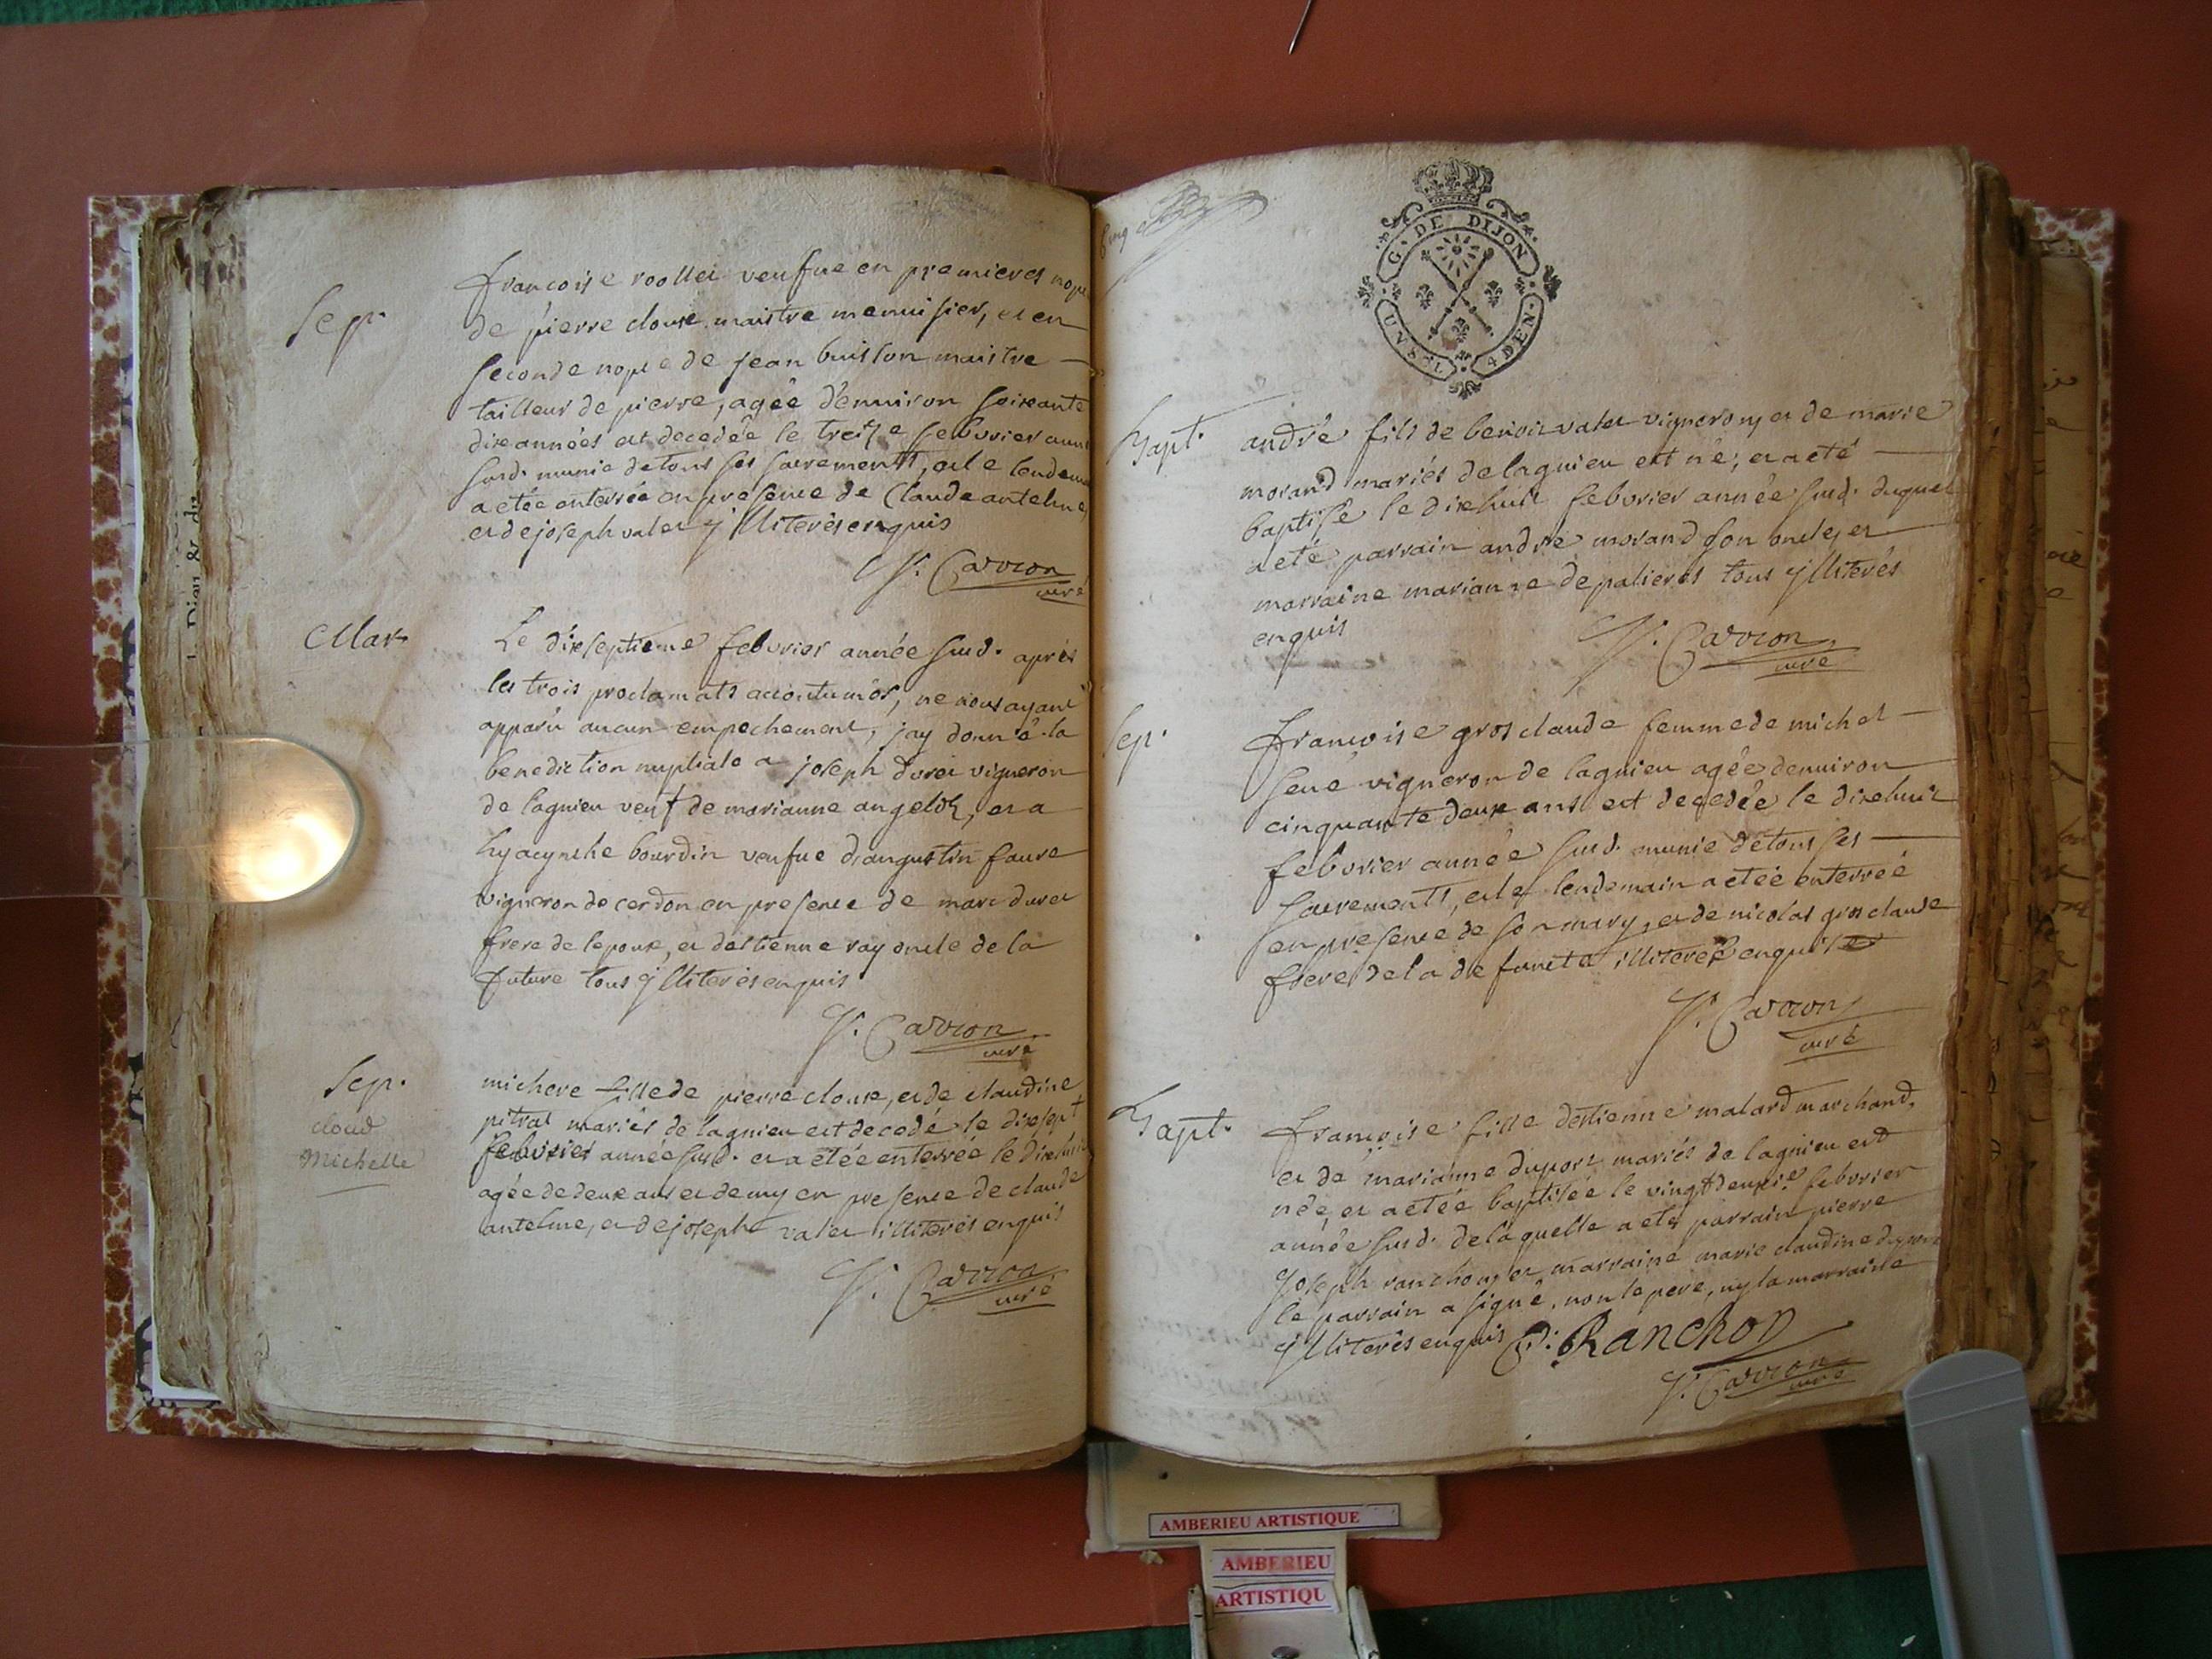 Sep.
francoise veufve en premieres
de pierre cloux maistre menuisier, et en
seconde nopce de jean buisson maistre
tailleur de pierre, agée d'environ soixante
dix années est decedée le treize febvrier
susd. munie de tous ses sacrements, et le
a etée enterrée en presence de Claude antelme
et de joseph valet illiterés enquis
Carron
curé
Mar.
Le dixseptieme febvrier année susd. apres
les trois proclamats accoutumés, ne nous ayant
apparu aucun empechement, j'ay donné la
benediction nuptiale a joseph duret vigneron
de lagnieu veuf de marianne, et a
hyacynthe bourdin veufve d'augustin faure
vigneron de cerdon en presence de marc duret
frere de lepoux, et destienne ray oncle de la
future tous illiterés enquis
Carron
curé
Sep.
cloud
Michelle
fille de pierre cloux, et de claudine
pitrat mariés de lagnieu est decedé le dixsept
febvrier année susd. et a etée enterrée le
agée de deux ans et demy en presence de claude
antelme, et de joseph valet illiterés enquis
Carron
curé
G. DE DIJON
UN SN. 4 DEN.
Bapt.
andré fils de benoit valet vigneron, et de marie
morand mariés de lagnieu est né, et a eté
baptisé le dixhuit febvrier année susd. duquel
a eté parrain andré morand son oncle, et
marraine marianne depalieres tous illiterés
enquis
Carron
curé
Sep.
francoise gros claude femme de michel
vigneron de lagnieu agée denviron
cinquante deux ans est decedée le dixhuit
febvrier année susd. munie de tous ses
sacrements, et le lendemain a etée enterrée
en presence de son mary, et de nicolas gros claude
frere de la defuncte illiterés enquis
Carron
curé
Bapt.
françoise fille destienne malard marchand,
et de marianne dupont mariés de lagnieu est
née, et a etée baptisée le vingtdeuxie febvrier
année susd. de laquelle a eté parrain pierre
joseph ranchon, et marraine marie claudine
le parrain a signé, non le pere, ny la marraine
illiterés enquis P. Ranchon
Carron
curé
AMBERIEU ARTISTIQUE
AMBERIEU
ARTISTIQU